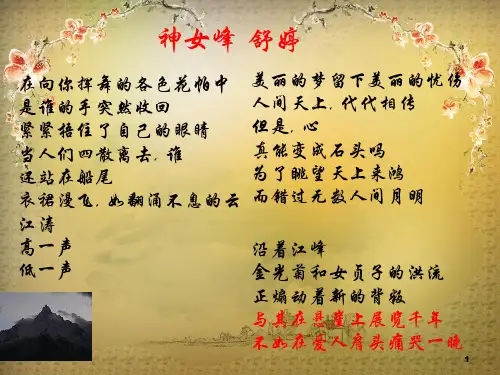 神女峰 舒婷
在向你挥舞的各色花帕中
是谁的手突然收回
紧紧捂住了自己的眼睛
当人们四散离去，谁
还站在船尾
衣裙漫飞，如翻涌不息的云
江涛
高一声
低一声
美丽的梦留下美丽的忧伤
人间天上，代代相传
但是，心
真能变成石头吗
为了眺望天上来鸿
而错过无数人间月明
沿着江峰
金光菊和女贞子的洪流
正煽动着新的背叛
与其在悬崖上展览千年
不如在爱人肩头痛哭一晚